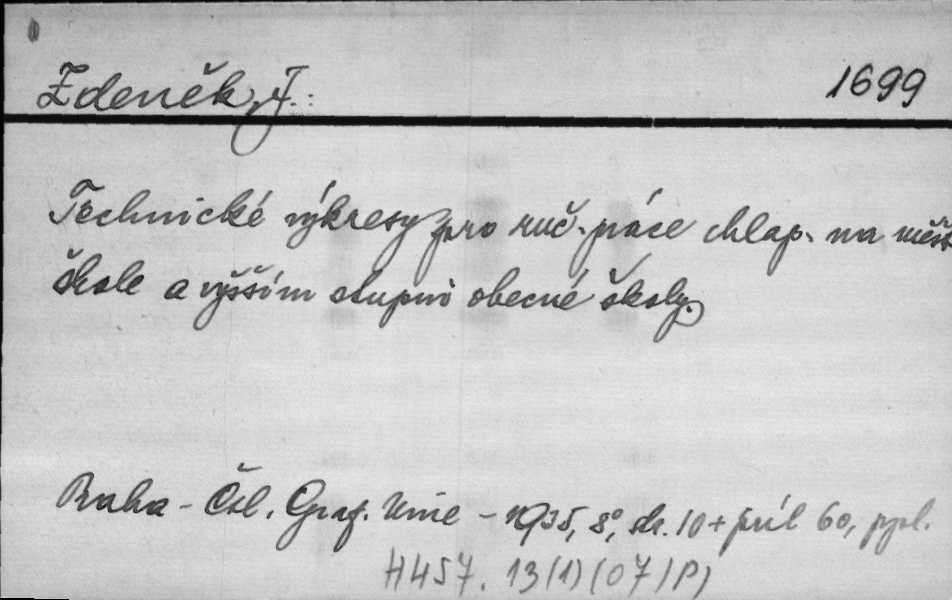 Zdeněk, J.: 1699
Technické výkresy pro ruč. práce chlap. na měšť.
škole a vyšším stupni obecné školy.
Praha - Čsl. Graf. Unie - 1935, 8°, str. 10 + příl 60, ppl.
H457. 13(1)(07)P)